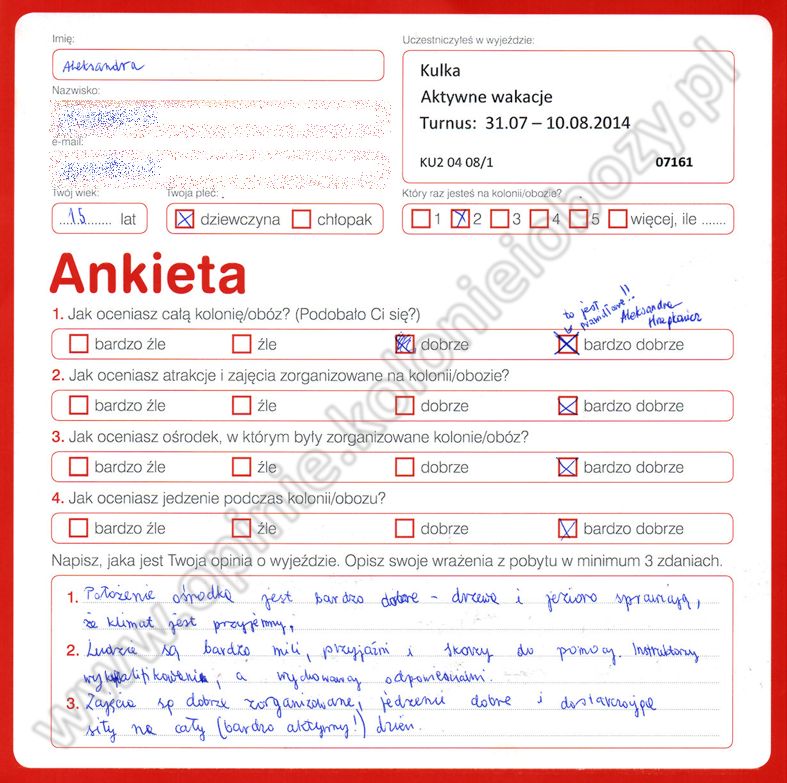 Imię:
Aleksandra
Nazwisko:
e-mail:
Twój wiek:
15 lat
Twoja płeć:
dziewczyna chłopak
Uczestniczyłeś w wyjeździe:
Kulka
Aktywne wakacje
Turnus: 31.07 – 10.08.2014
KU2 04 08/1 07161
Który raz jesteś na kolonii/obozie?
1 2 3 4 5 więcej, ile .......
Ankieta
1. Jak oceniasz całą kolonię/obóz? (Podobało Ci się?)
to jest
prawidłowe!!
Aleksandra
bardzo źle źle dobrze bardzo dobrze
2. Jak oceniasz atrakcje i zajęcia zorganizowane na kolonii/obozie?
bardzo źle źle dobrze bardzo dobrze
3. Jak oceniasz ośrodek, w którym były zorganizowane kolonie/obóz?
bardzo źle źle dobrze bardzo dobrze
4. Jak oceniasz jedzenie podczas kolonii/obozu?
bardzo źle źle dobrze bardzo dobrze
Napisz, jaka jest Twoja opinia o wyjeździe. Opisz swoje wrażenia z pobytu w minimum 3 zdaniach.
1. Położenie ośrodka jest bardzo dobre - drzewa i jezioro sprawiają,
że klimat jest przyjemny.
2. Ludzie są bardzo mili, przyjaźni i skorzy do pomocy. Instruktorzy
wykwalifikowani, a wychowawcy odpowiedzialni.
3. Zajęcia są dobrze zorganizowane, jedzenie dobre i dostarczające
siły na cały (bardzo aktywny!) dzień.
www.opinie.kolonieiobozy.pl